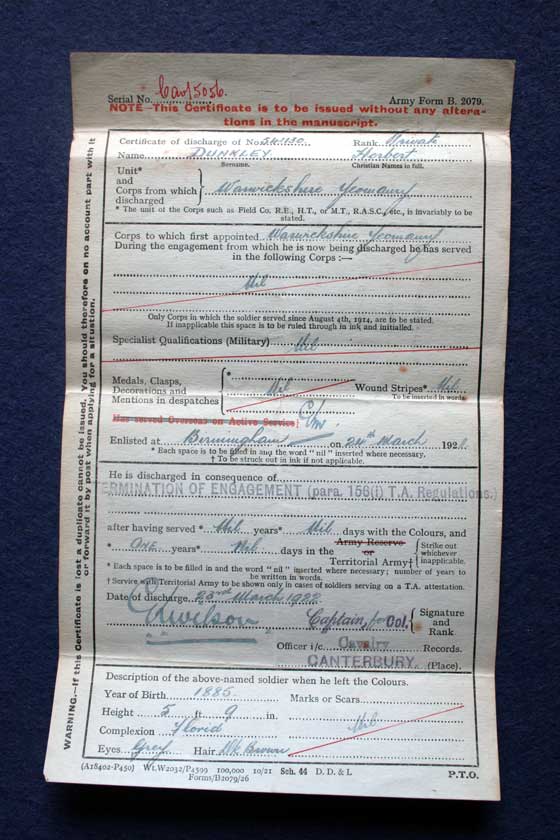 Serial No. Cav/5056. Army Form B. 2079.
NOTE—This Certificate is to be issued without any altera-
tions in the manuscript.
Certificate of discharge of No. Rank Private
Name DUNKLEY Herbert
Surname. Christian Names in full.
Unit*
and
Corps from which
discharged
Warwickshire Yeomanry
* The unit of the Corps such as Field Co. R.E., H.T., or M.T., R.A.S.C., etc., is invariably to be
stated.
Corps to which first appointed Warwickshire Yeomanry
During the engagement from which he is now being discharged he has served
in the following Corps:—
Nil
Only Corps in which the soldier served since August 4th, 1914, are to be stated.
If inapplicable this space is to be ruled through in ink and initialled.
Specialist Qualifications (Military) Nil
Medals, Clasps,
Decorations and
Mentions in despatches
* Nil
Wound Stripes* Nil
To be inserted in words.
Has served Overseas on Active Service†
Enlisted at Birmingham on March 192
* Each space is to be filled in and the word "nil" inserted where necessary.
† To be struck out in ink if not applicable.
He is discharged in consequence of
TERMINATION OF ENGAGEMENT (para. 156(i) T.A. Regulations.)
after having served * Nil years* Nil days with the Colours, and
* One years* Nil days in the Army Reserve
or
Territorial Army†
Strike out
whichever
inapplicable.
* Each space is to be filled in and the word "nil" inserted where necessary; number of years to
be written in words.
† Service with Territorial Army to be shown only in cases of soldiers serving on a T.A. attestation.
Date of discharge 23rd March 1922
Wilson Captain, for Col.
Signature
and
Rank
Officer i/c Cavalry Records.
CANTERBURY. (Place).
Description of the above-named soldier when he left the Colours.
Year of Birth 1885 Marks or Scars
Height 5 ft 9 in. Nil
Complexion Florid
Eyes Grey Hair Dk Brown
(A18402-P450) Wt.W2032/P4599 100,000 10/21 Sch. 44 D. D. & L
Forms/B2079/26
P.T.O.
WARNING.—If this Certificate is lost a duplicate cannot be issued. You should therefore on no account part with it
or forward it by post when applying for a situation.